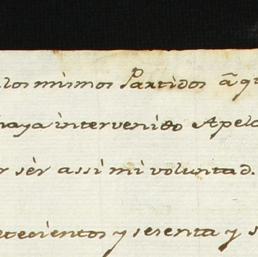 los mismos Partidos â q
haya intervenido Apela
r sér assi mi voluntad.
etecientos y sesenta y s